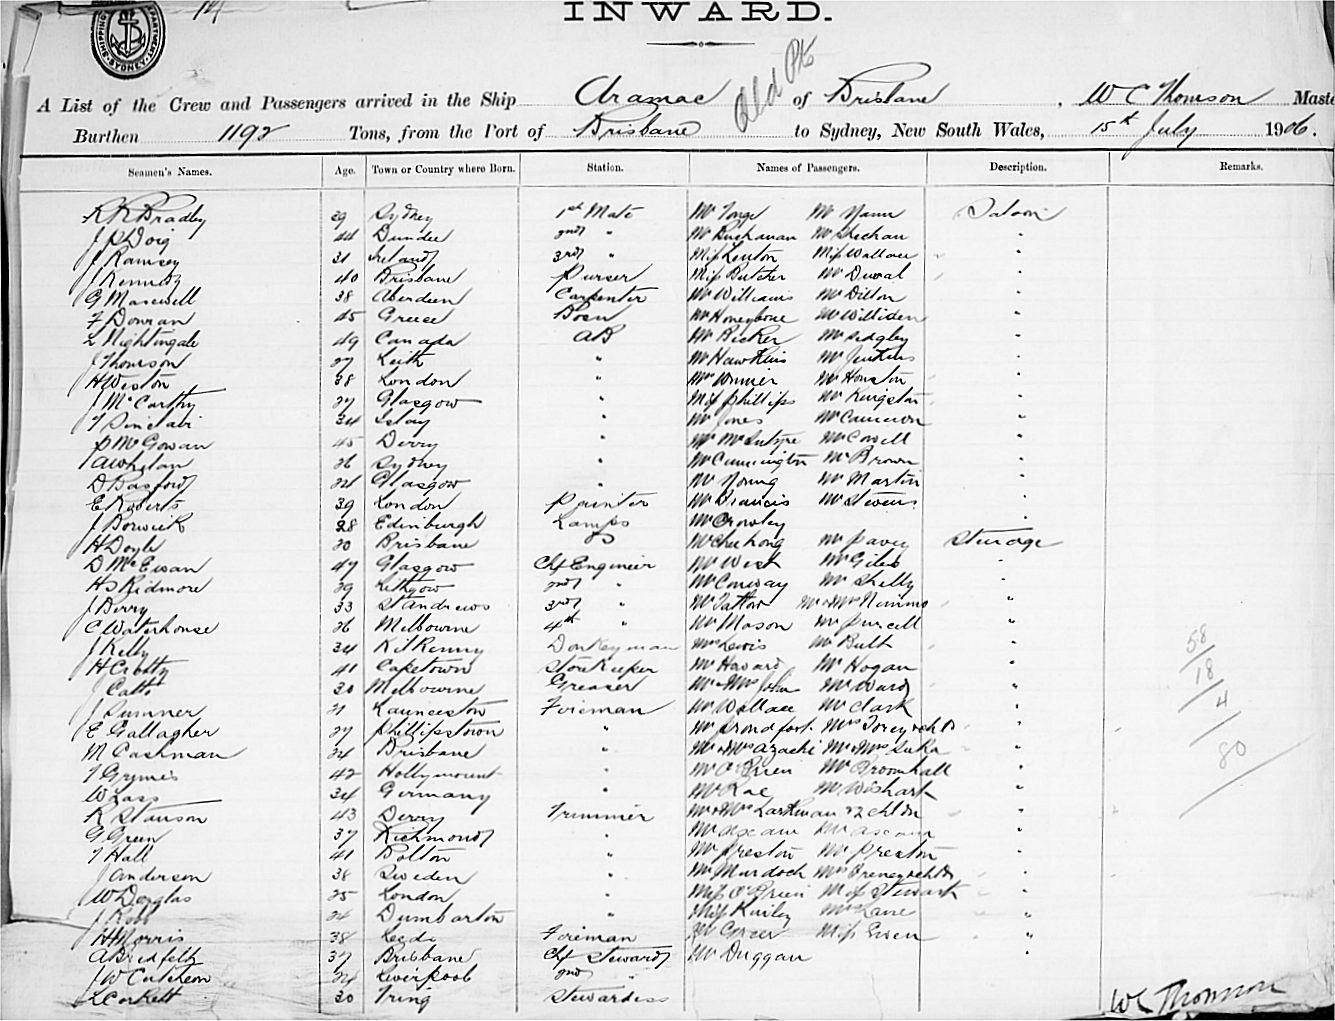 14
SHIPPING DEPARTMENT SYDNEY
INWARD.
Old Pt
A List of the Crew and Passengers arrived in the Ship Aramac of Brisbane, W C Thomson Maste
Burthen 1192 Tons, from the Port of Brisbane to Sydney, New South Wales, 15th July 1906.
Seamen's Names. Age. Town or Country where Born. Station. Names of Passengers. Description. Remarks.
R R Bradley 39 Sydney 1st Mate Mr Tonge Mr Nann Saloon
J P Doig 44 Dundee 2nd " Mr Buchanan Mr Sheehan "
J Ramsey 31 Ireland 3rd " Miss Lenton Miss Wallace "
J Kennedy 40 Brisbane Purser Miss Butcher Mr Duval "
G Maxwell 38 Aberdeen Carpenter Mr Williams Mr Dillon "
F Dounan 45 Greece Bosn Mr Honeybone Mr Williden "
L Nightingale 49 Canada AB Mr Becker Mr Sedgley "
J Thomson 27 Leith " Mr Hawkins Mr Jenkins "
H Weston 38 London " Mrs Winner Mr Houston "
J McCarthy 27 Glasgow " Miss Phillips Mr Kingston "
T Sinclair 34 Islay " Mr Jones Mr Cameron "
P McGowan 45 Derry " Mr McIntyre Mr Cowell "
A Whelan 26 Sydney " Mr Cunnington Mr Brown "
D Basford 24 Glasgow " Mr Young Mr Martin "
E Roberts 39 London Painter Mr Francis Mr Stevens "
J Borwick 28 Edinburgh Lamps Mr Crowley "
H Doyle 20 Brisbane OS Mr Chee Kong Mr Pavey Steerage
D McEwan 47 Glasgow Chf Engineer Mr West Mr Giles "
H S Ridmore 29 Lithgow 2nd " Mr Conway Mr Shelly "
J Berry 33 St Andrews 3rd " Mr Tattow Mr & Mrs Nimmo "
C Waterhouse 26 Melbourne 4th " Mr Mason Mr Purcell "
J Kelly 34 Kilkenny Donkeyman Mrs Lewis Mr Butt "
H Crbitty 41 Capetown Storekeeper Mr Havard Mr Hogan "
J Catts 30 Melbourne Greaser Mr & Mrs John Mr Ward "
J Sumner 21 Launceston Fireman Mr Wallace Mr Clark "
E Gallagher 27 Phillipstown " Mr Proudfoot Mrs Torey & chdn "
M Cashman 24 Brisbane " Mr & Mrs Azachi Mr & Mrs Suka "
T Grymes 42 Hollymount " Mr O'Brien Mr Broomhall "
W Lass 34 Germany " Mr Rae Mr Wishart "
R Stanson 43 Derry Trimmer Mr & Mrs Larkman & 2 chldn "
G Green 37 Richmond " Mr Ascam Mr Ascam "
T Hall 41 Bolton " Mr Preston Mr Preston "
J Anderson 38 Sweden " Mr Murdoch "
W Douglas 25 London " Miss O'Brien Miss Stewart "
J Robb 24 Dumbarton " Miss Kirley Mrs Lane "
H Morris 38 Leeds Fireman Mr Greer Miss Green "
A Bredfelt 37 Brisbane Chf Steward Mr Duggan "
J W Cutcheon 24 Liverpool 2nd "
L Corkett 30 Tring Stewardess
58
18
4
80
W C Thomson